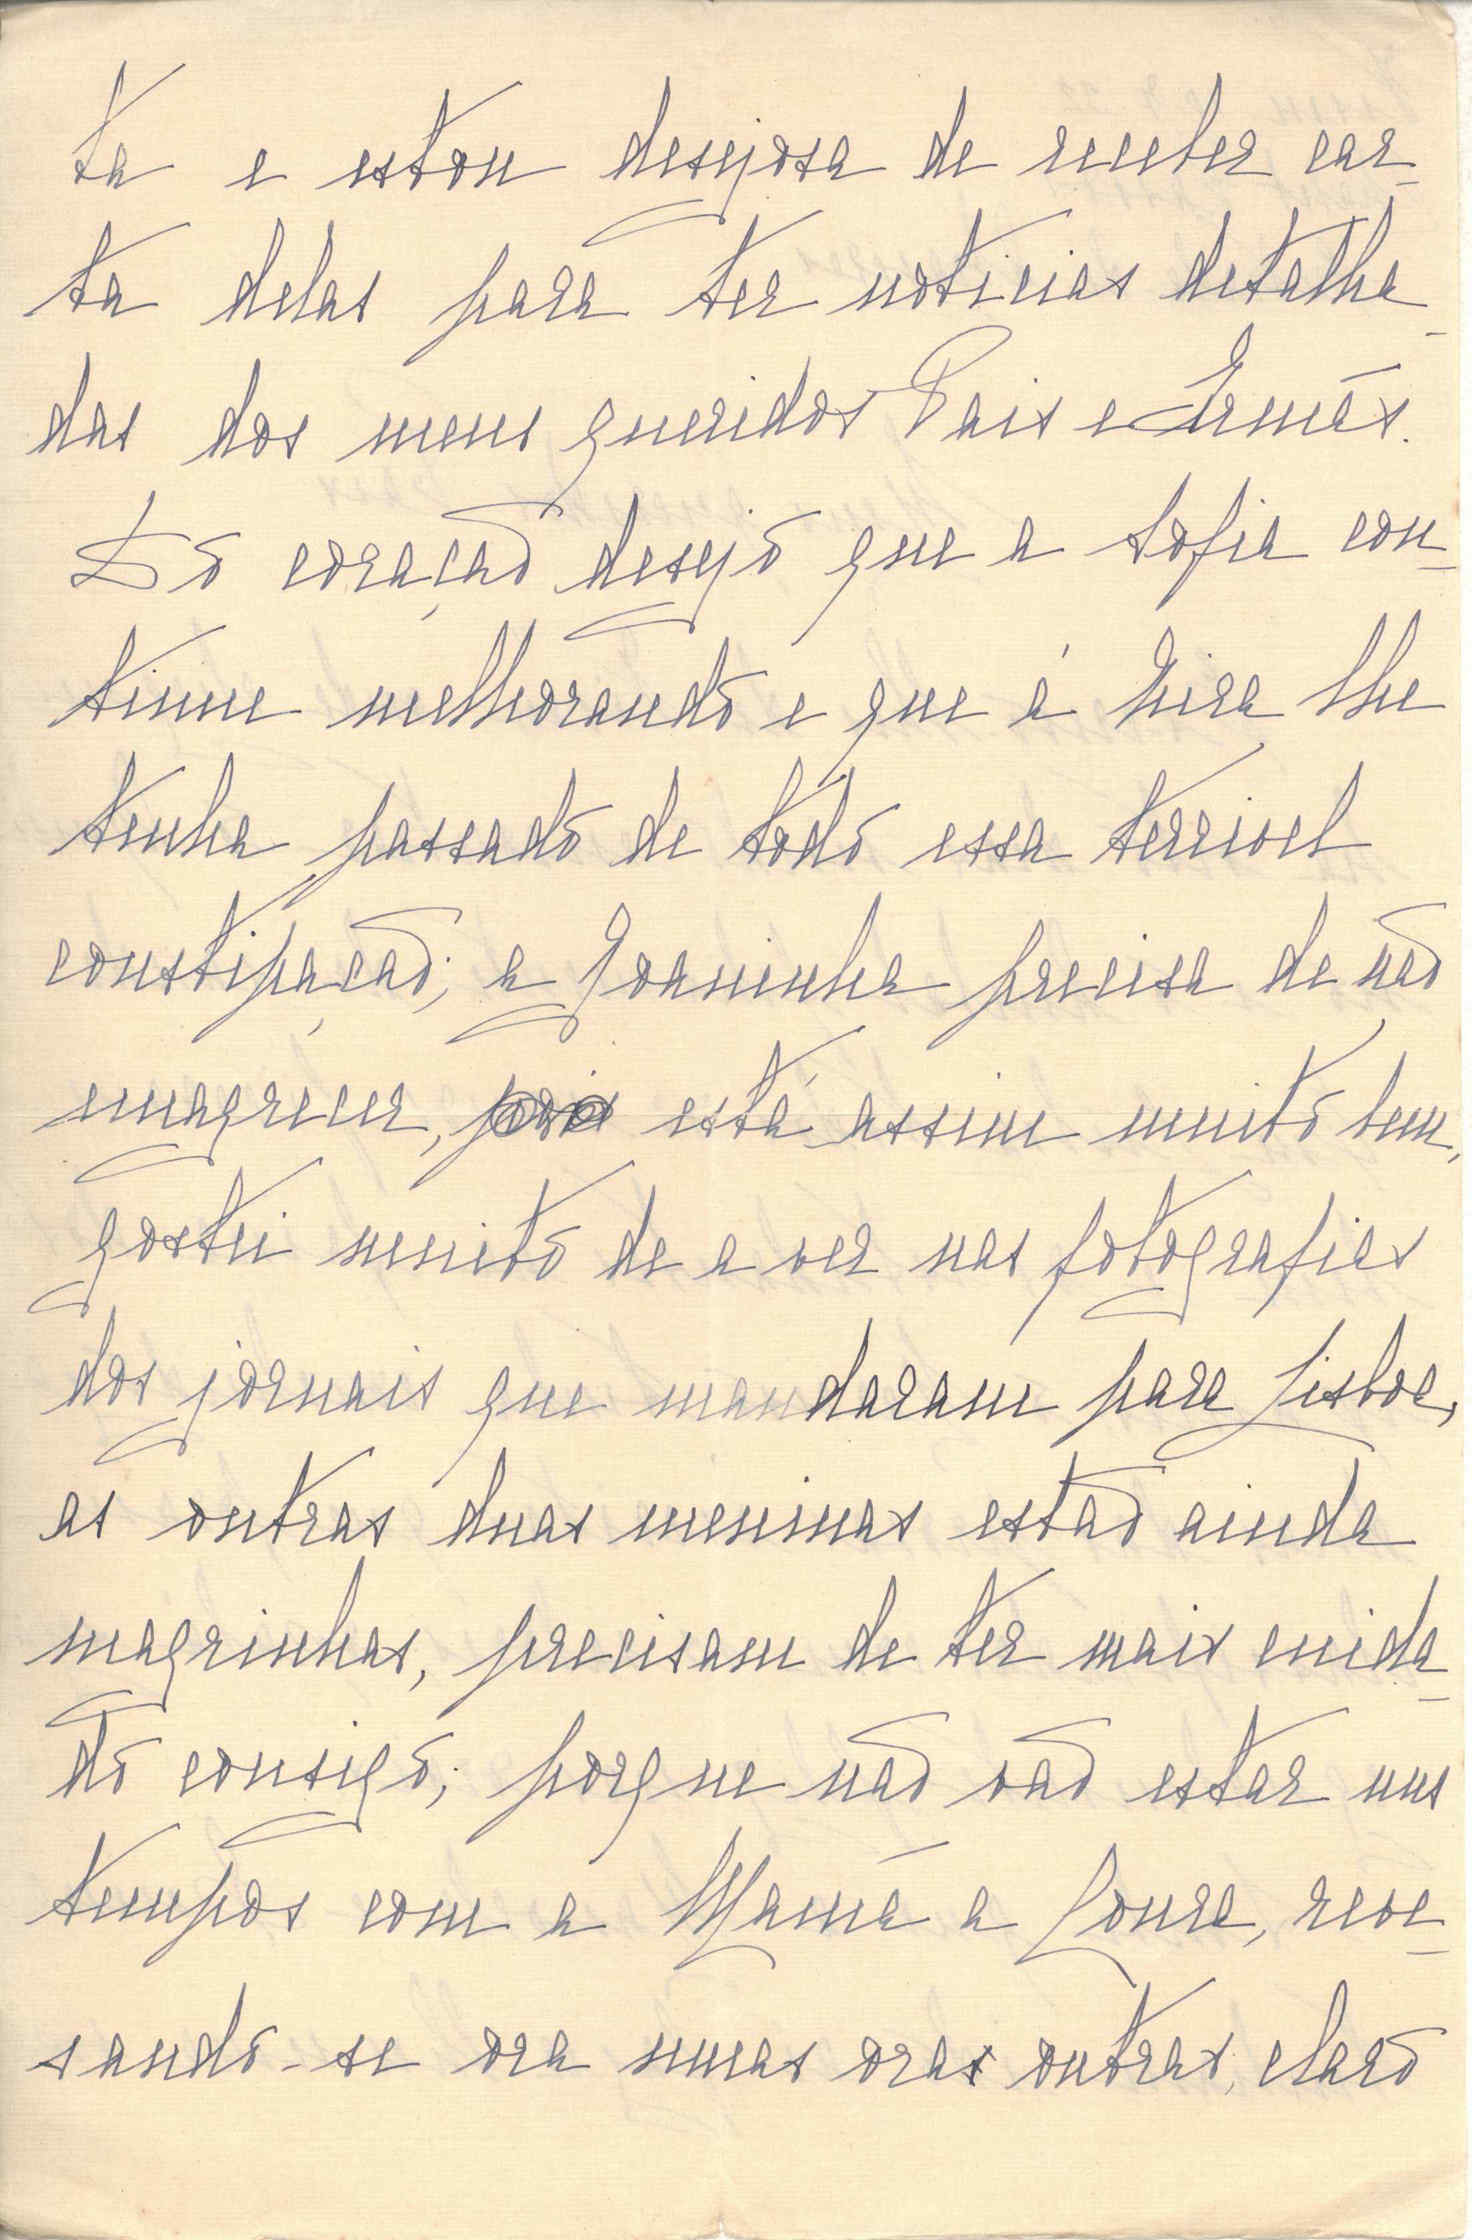 ta e estou desejosa de receber car-
ta delas para ter noticias detalha-
das dos meus queridos Pais e Irmãs.
Dó coração desejo que a Sofia con-
tinue melhorando e que á Nira lhe
tenha passado de todo essa terrivel
constipação; a Joaninha precisa de não
emagrecer, pois está assim muito bem,
gostei muito de a ver nas fotografias
dos jornais que mandaram para Lisboa,
as outras duas meninas estão ainda
magrinhas, precisam de ter mais cuida-
do consigo; porque não vão estar uns
tempos com a Mamã a Loure, reve-
sando-se ora numas oras outras, claro